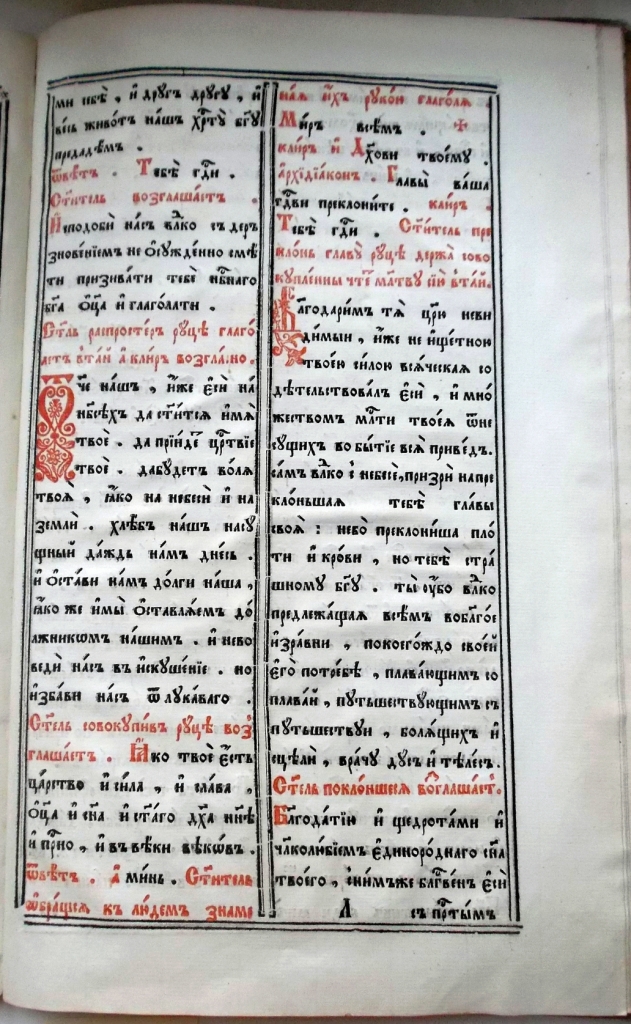 ми себѣ , и҆ дрꙋгъ дрꙋгꙋ , и҆
весь живо́тъ нашъ хрⷭ҇тꙋ̀ бг҃ꙋ
предади́мъ .
ѿвѣтъ . Тебѣ гдⷭ҇и .
Ст҃итель возглаша́етъ .
И҆ сподо́би насъ влⷣко съ дер
зновенїемъ не ѡ҆сꙋжде́нно смѣ
ти призива́ти тебѐ нбⷭ҇наго
бг҃а ѻ҆ц҃а̀ и҆ глаго́лати .
Ст҃ль распросте́ръ рꙋцѣ глаго́
летъ в̾ тай а̀ кли́ръ возгла́сно .
Ѻч҃е нашъ , и҆́же є҆сѝ на
нб҃сѣхъ да ст҃и́тсѧ и҆́мѧ
твоѐ . да прїи́детъ црⷭ҇твїе
твоѐ . да бꙋ́детъ волѧ
твоѧ̀ , ꙗ҆́ко на небесѝ и҆ на
землѝ . хлѣбъ нашъ насꙋ
щный да́ждь намъ дне́сь .
и҆ ѡ҆ста́ви намъ до́лги наша ,
ꙗ҆́ко же и҆ мы̀ ѡ҆ставлѧ́емъ до
лжникѡмъ нашимъ . и҆ не во
ведѝ насъ въ и҆скꙋшенїе . но
и҆зба́ви насъ ѿ лꙋка́ваго .
Ст҃ль совокꙋпи́въ рꙋцѣ воз
глаша́етъ . Ꙗ҆́ко твоѐ є҆́сть
ца́рство и҆ си́ла , и҆ сла́ва ,
ѻ҆ц҃а̀ и҆ сн҃а и҆ ст҃а́го дх҃а ннⷩ҇ѣ
и҆ при́сно , и҆ въ вѣки вѣкѡ́въ .
ѿвѣтъ . А҆ми́нь . Ст҃итель
ѡ҆бра́щсѧ къ лю́демъ знаме
наѧ и҆хъ рꙋко́ю глаго́лѧ
Ми́ръ всѣмъ .
кли́ръ И҆ Дх҃ови твоемꙋ̀ .
А҆рхїдїа́конъ . Главы̀ ва́ша
гдⷭ҇ви преклони́те . кли́ръ .
Тебѣ гдⷭ҇и . Ст҃итель пре
кло́нь главꙋ̀ рꙋцѣ держа̀ сово
кꙋпле́нны чте́тъ мл҃твꙋ сїю̀ в̾ тай .
Благодари́мъ тѧ̀ цр҃ю̀ неви
ди́мый , и҆́же неищетною
твоею си́лою всѧ́ческаѧ со
дѣтельствовалъ є҆сѝ , и҆ мно́
жествомъ млⷭ҇ти твоеѧ̀ ѿ не
сꙋщихъ во бытїе всѧ̀ приве́дъ .
са́мъ влⷣко с̾ небесѐ , призрѝ на пре
кло́ньшаѧ тебѣ главы̀
своѧ̀ : не бо̀ преклони́ша пло́
ти и҆ кро́ви , но тебѣ стра́
шномꙋ бг҃ꙋ . ты̀ ᲂу҆́бо влⷣко
предлежа́щаѧ всѣмъ во благо́е
и҆зра́вни , по коегождо своей
є҆гѡ̀ потре́бѣ , пла́вающимъ со
пла́вай , пꙋтьше́ствꙋющимъ съ
пꙋтьше́ствꙋи , болѧ́щихъ и҆
сцѣлѝ , врачꙋ̀ дꙋ́съ и҆ тѣле́съ .
Ст҃ль поклоншеисѧ возглаша́етъ .
Благода́тїю и҆ щедро́тами и҆
чл҃колюбїемъ є҆диноро́днагѡ сн҃а
твоегѡ , с̾ ни́мъже блгⷭ҇ве́нъ є҆сѝ
Л съ прⷭ҇ты́мъ